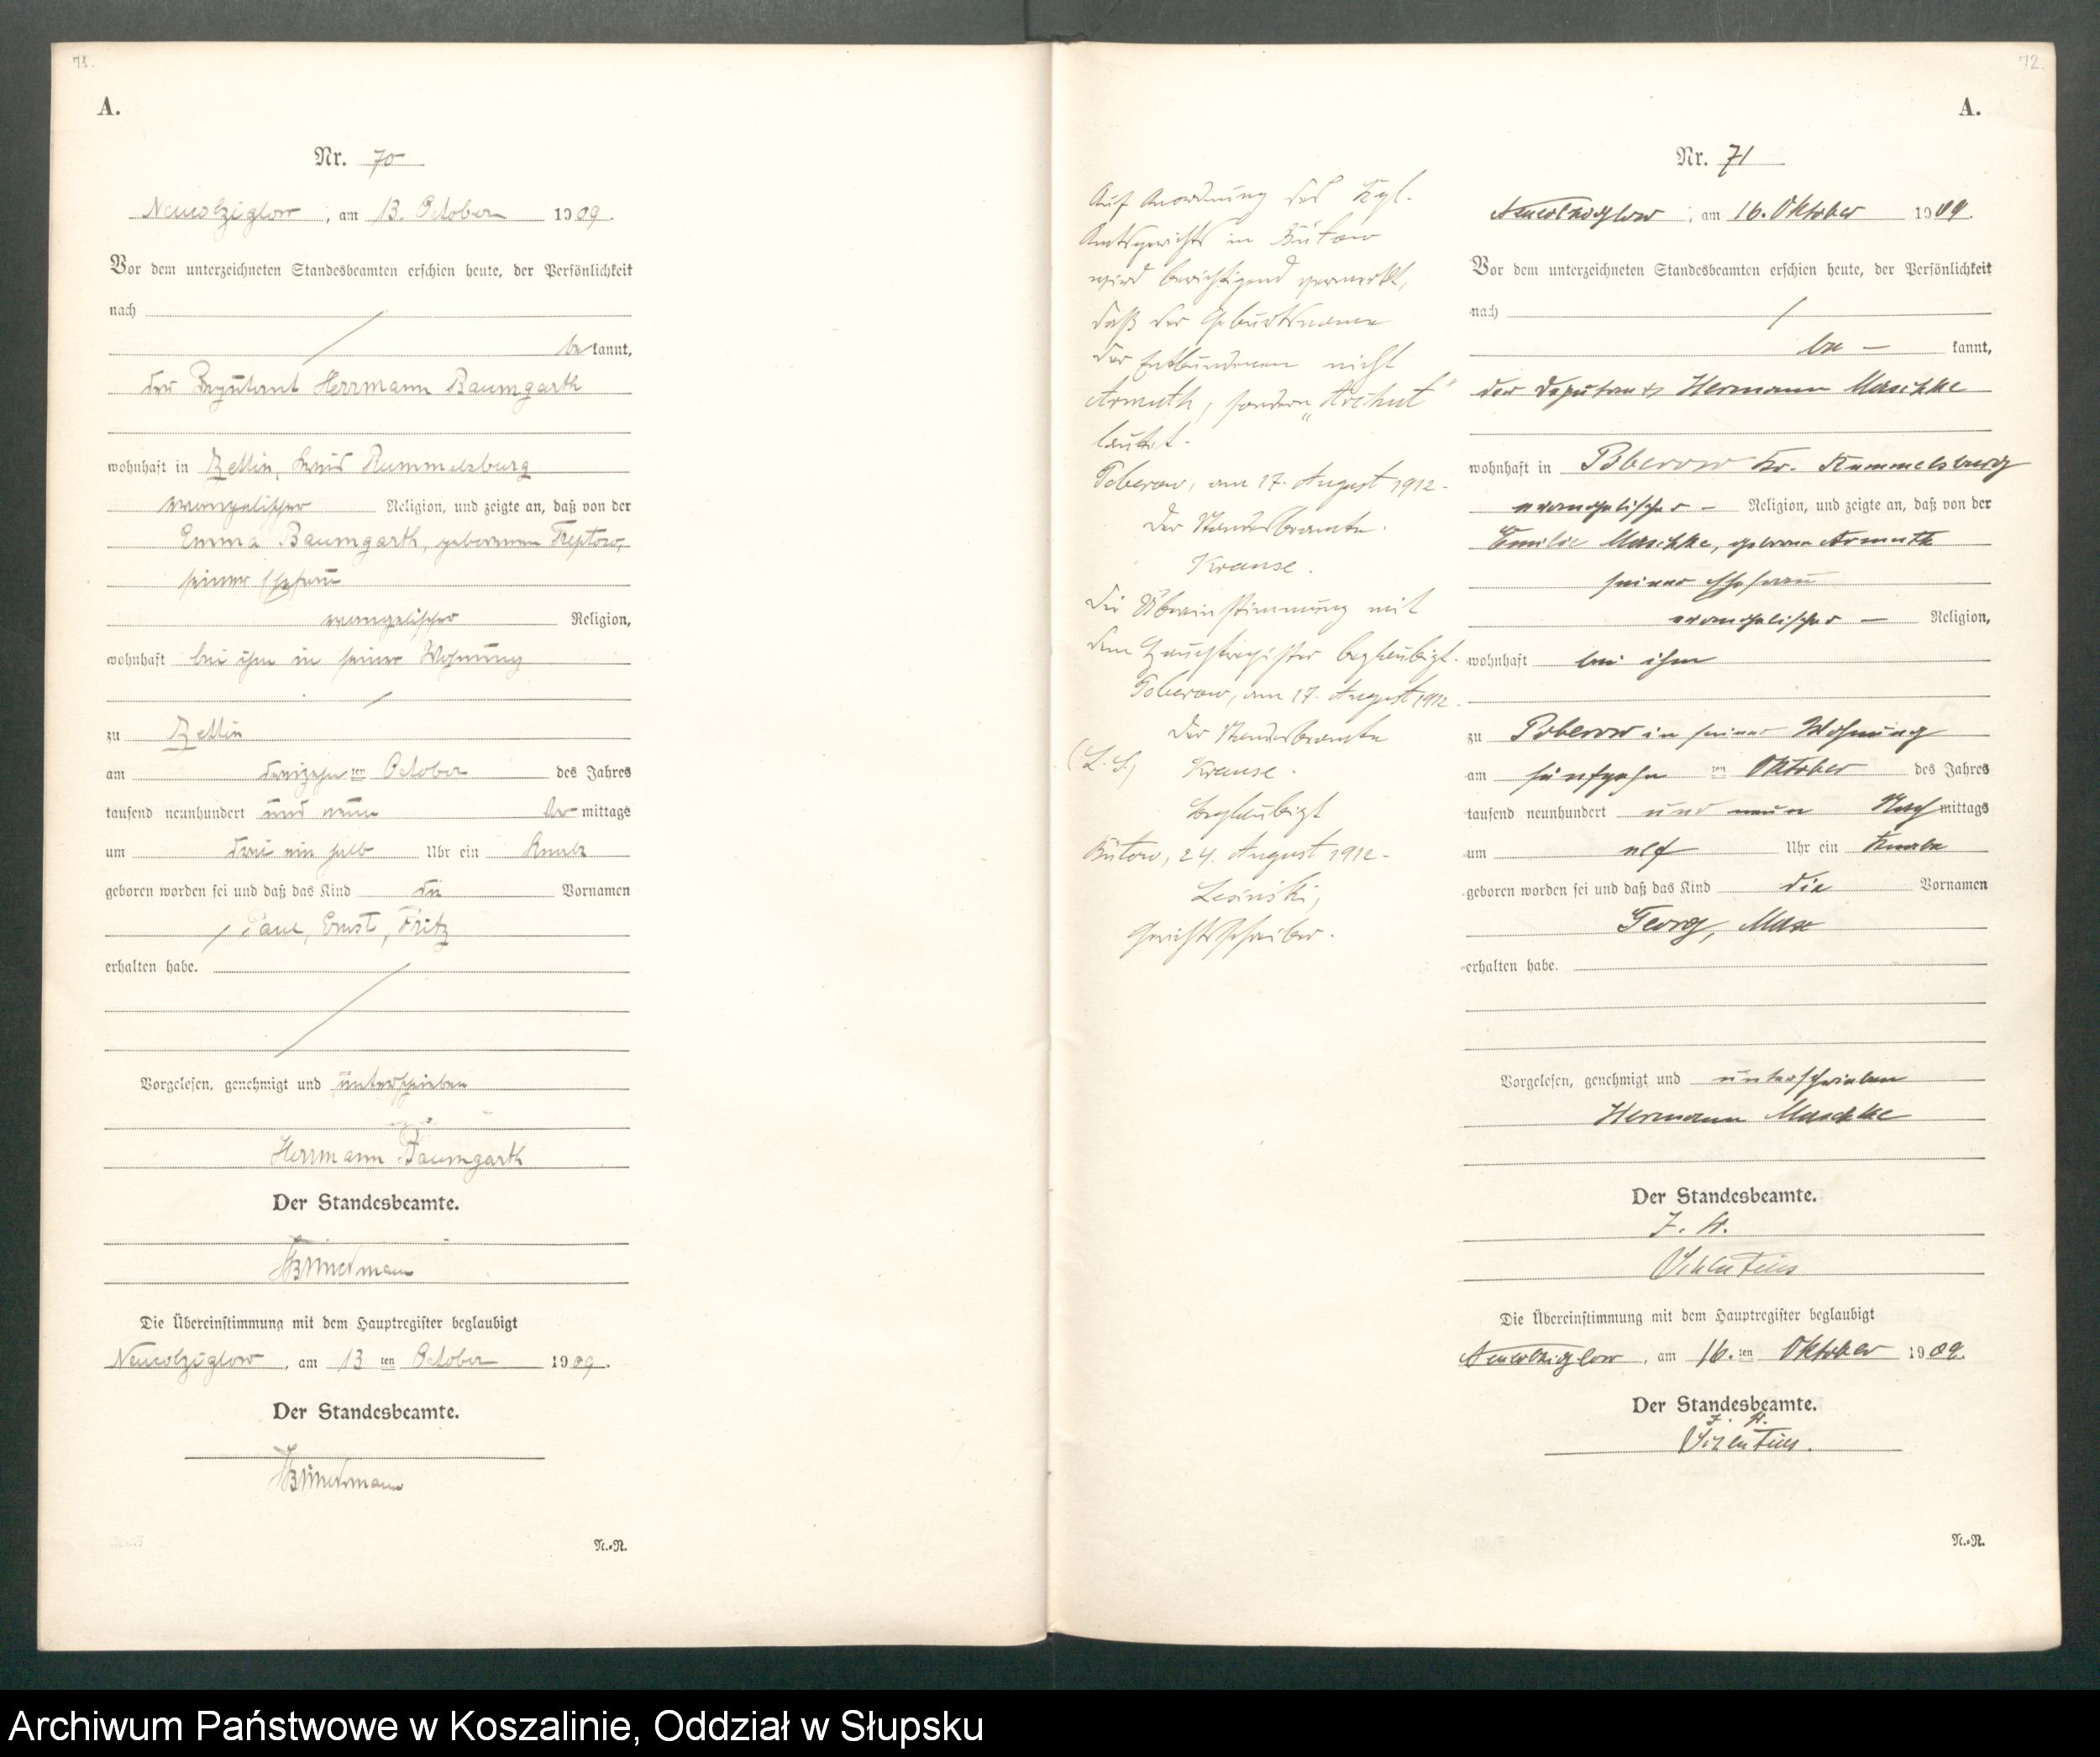 71.
A.
Nr. 70
Neukolziglow, am 13. October 1909.
Vor dem unterzeichneten Standesbeamten erschien heute, der Persönlichkeit
nach
bekannt,
der Deputant Herrmann Baumgarth
wohnhaft in Zettin, Kreis Rummelsburg
evangelischer Religion, und zeigte an, daß von der
Emma Baumgarth, geborenen Treptow,
seiner Ehefrau
evangelischer Religion,
wohnhaft bei ihm in seiner Wohnung
zu Zettin
am dreizehnten October des Jahres
tausend neunhundert und neun Vormittags
um drei ein halb Uhr ein Knabe
geboren worden sei und daß das Kind die Vornamen
Paul, Ernst, Fritz
erhalten habe.
Vorgelesen, genehmigt und unterschrieben
Herrmann Baumgarth
Der Standesbeamte.
Die Übereinstimmung mit dem Hauptregister beglaubigt
Neukolziglow, am 13ten October 1909.
Der Standesbeamte.
N.-R.
72.
A.
Nr. 71
Auf Anordnung des Kgl.
Amtsgerichts in Bütow
wird berichtigend vermerkt,
daß der Geburtsname
der Entbundenen nicht
Armuth, sondern „Arehut"
lautet.
Poberow, am 17. August 1912.
Der Standesbeamte.
Krause.
Die Übereinstimmung mit
dem Hauptregister beglaubigt.
Poberow, am 17. August 1912.
Der Standesbeamte
(L. S.) Krause.
Beglaubigt
Bütow, 24. August 1912.
Lesinski,
Gerichtsschreiber.
Neukolziglow, am 16. Oktober 1909.
Vor dem unterzeichneten Standesbeamten erschien heute, der Persönlichkeit
nach
be- kannt,
der Deputant Hermann Maschke
wohnhaft in Poberow Kr. Rummelsburg
evangelischer Religion, und zeigte an, daß von der
Emilie Maschke, geborene Armuth
seiner Ehefrau
evangelischer Religion,
wohnhaft bei ihm
zu Poberow in seiner Wohnung
am fünfzehnten Oktober des Jahres
tausend neunhundert und neun Nachmittags
um elf Uhr ein Knabe
geboren worden sei und daß das Kind die Vornamen
Georg, Max
erhalten habe.
Vorgelesen, genehmigt und unterschrieben
Hermann Maschke
Der Standesbeamte.
Die Übereinstimmung mit dem Hauptregister beglaubigt
Neukolziglow, am 16.ten Oktober 1909.
Der Standesbeamte.
N.-R.
Archiwum Państwowe w Koszalinie, Oddział w Słupsku